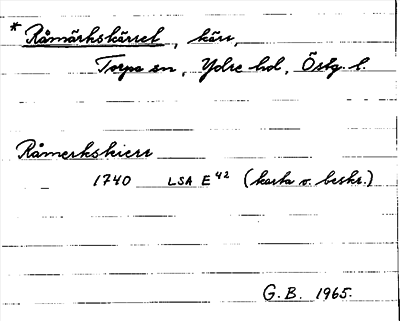 * Råmärkskärret, kärr,
Torpa sn, Ydre hd, Östg. l.
Råmerkskierr
1740 LSA E 42 (karta o. beskr.)
G. B. 1965.